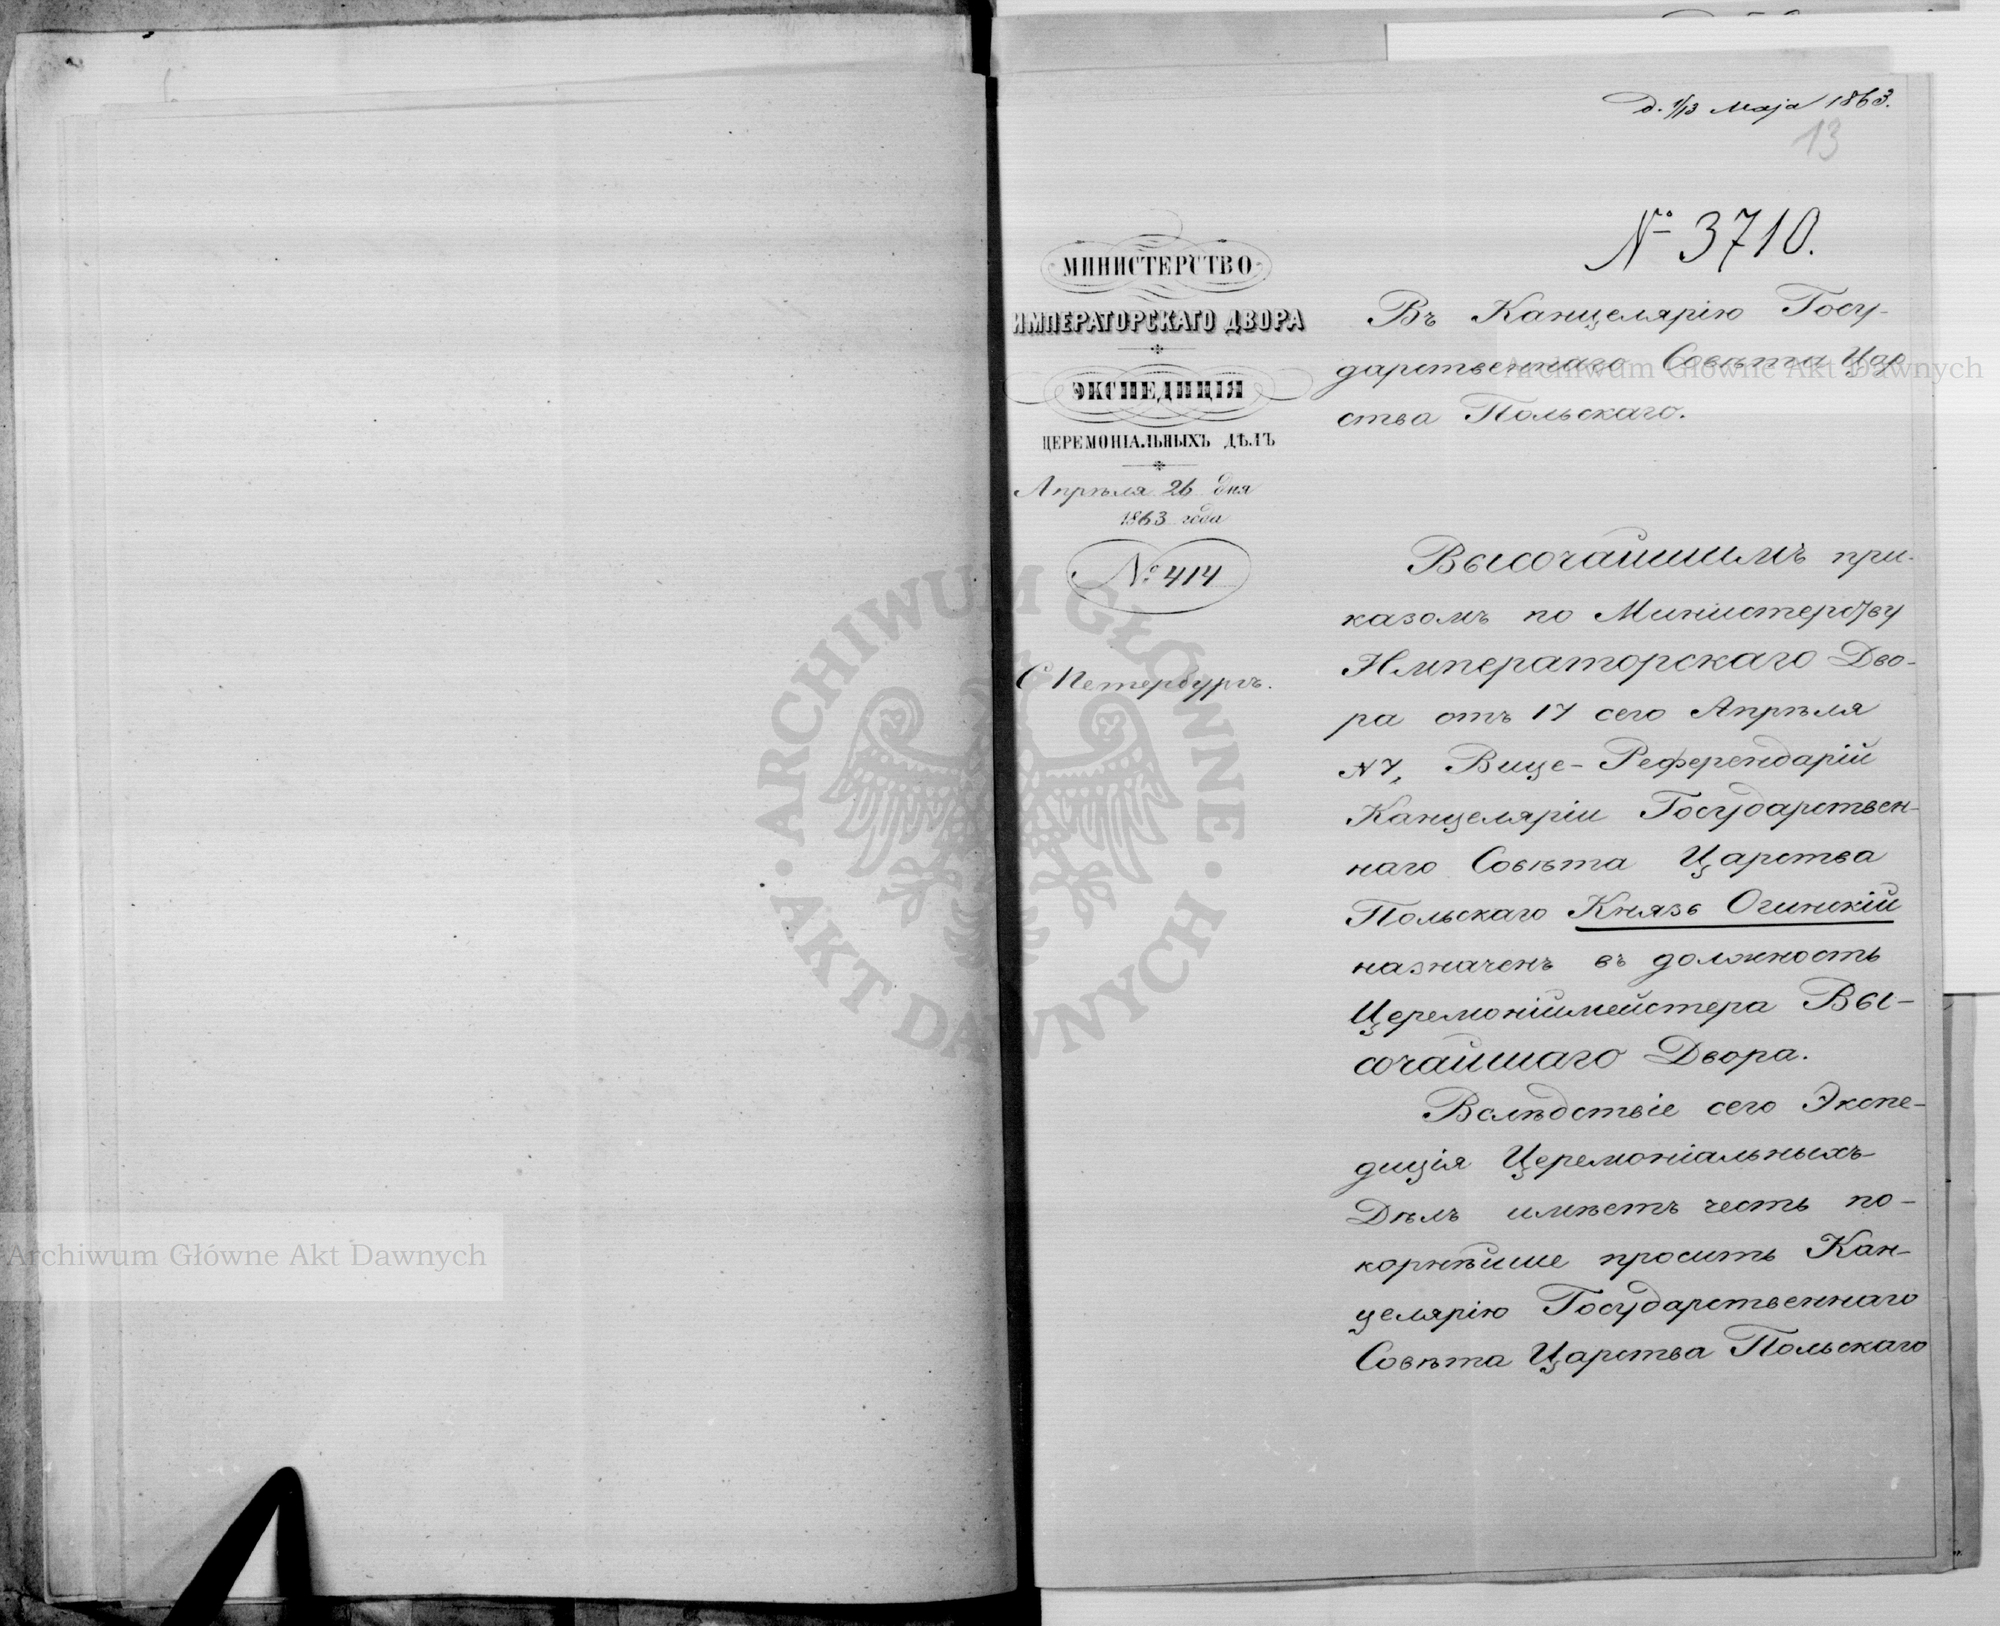 d. 1/13 Maja 1863.
13
№ 3710.
МИНИСТЕРСТВО
ИМПЕРАТОРСКАГО ДВОРА
ЭКСПЕДИЦІЯ
ЦЕРЕМОНІАЛЬНЫХЪ ДѢЛЪ
Апрѣля 26 дня
1863 года
№ 414
С Петербургъ.
Въ Канцелярію Госу-
дарственнаго Совѣта Цар
ства Польскаго.
Высочайшимъ при-
казомъ по Министерству
Императорскаго Дво-
ра отъ 17 сего Апрѣля
№ 7, Вице-Референдарій
Канцеляріи Государствен-
наго Совѣта Царства
Польскаго Князь Огинскій
назначенъ въ должность
Церемоніймейстера Вы-
сочайшаго Двора.
Вслѣдствіе сего Экспе-
диція Церемоніальныхъ
Дѣлъ имѣетъ честь по-
корнѣйше просить Кан-
целярію Государственнаго
Совѣта Царства Польскаго
Archiwum Główne Akt Dawnych
Archiwum Główne Akt Dawnych
ARCHIWUM GŁÓWNE · AKT DAWNYCH ·